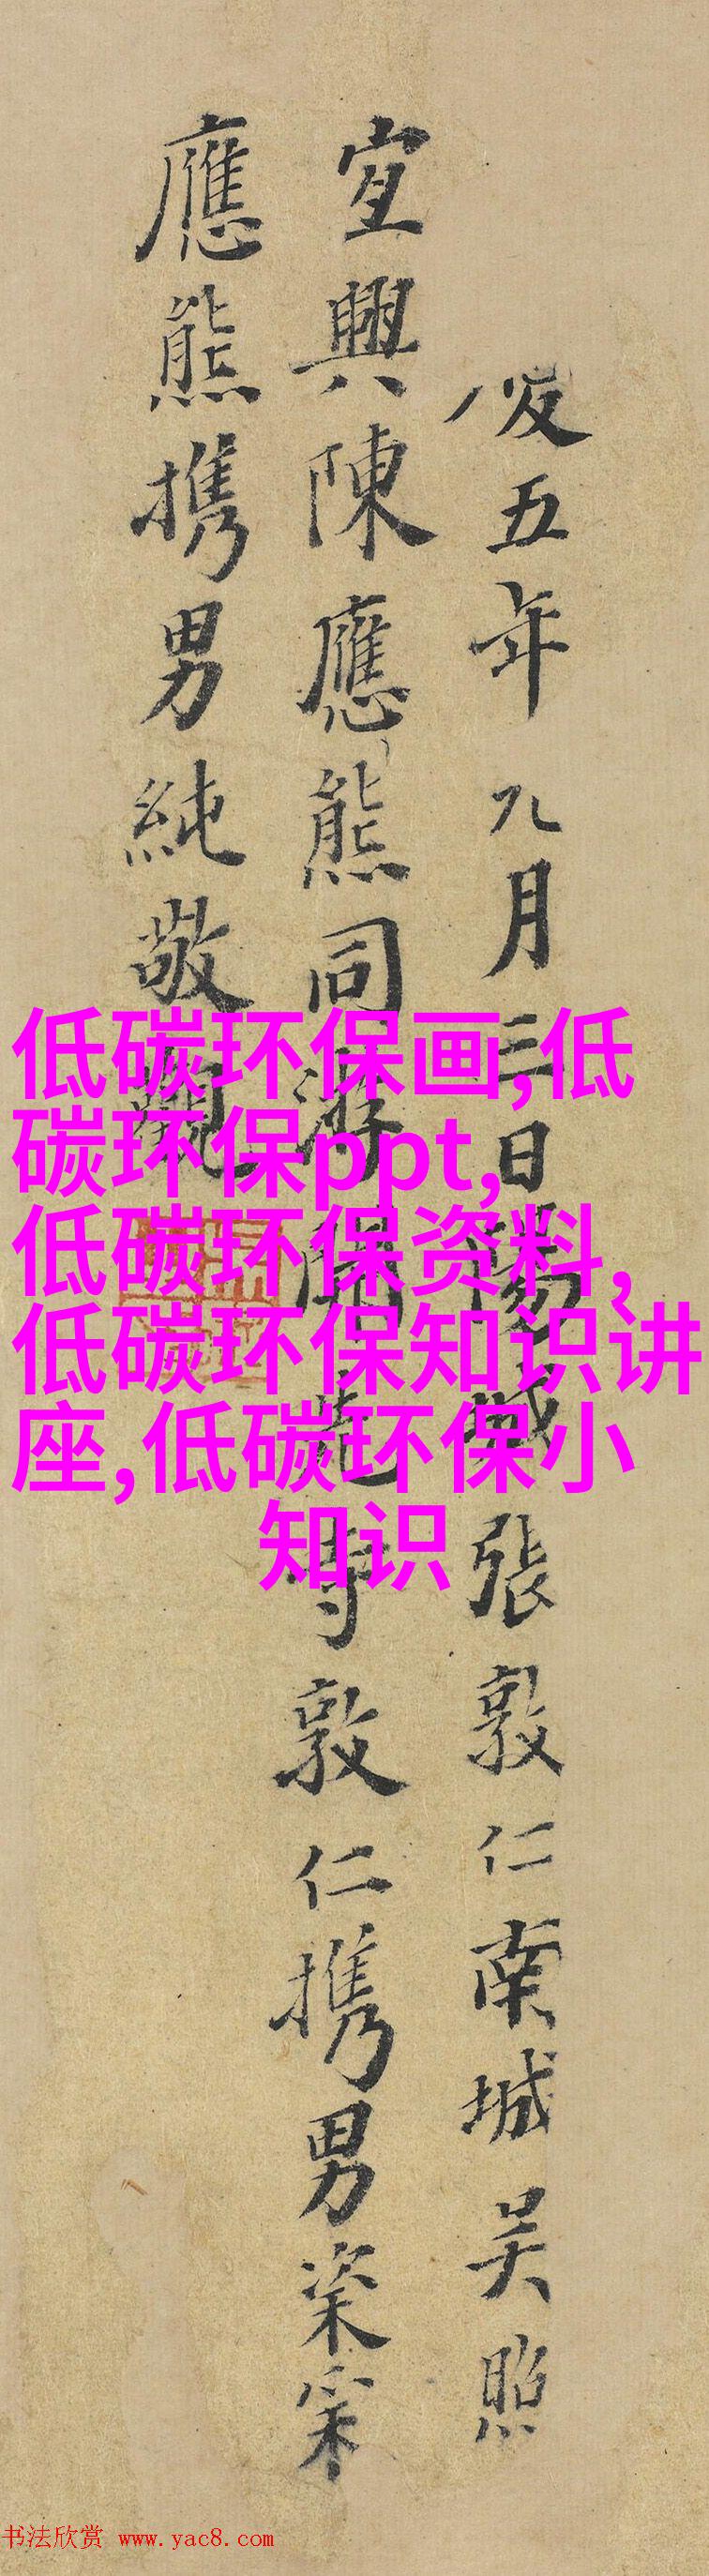 五年九月三日陽城張敦仁南城吴照
宜興陳應熊同游開先寺敦仁攜男粢寀
應熊攜男純敬觀
低碳环保画,低
碳环保ppt,
低碳环保资料,
低碳环保知识讲
座,低碳环保小
知识
书法欣赏 www.yac8.com